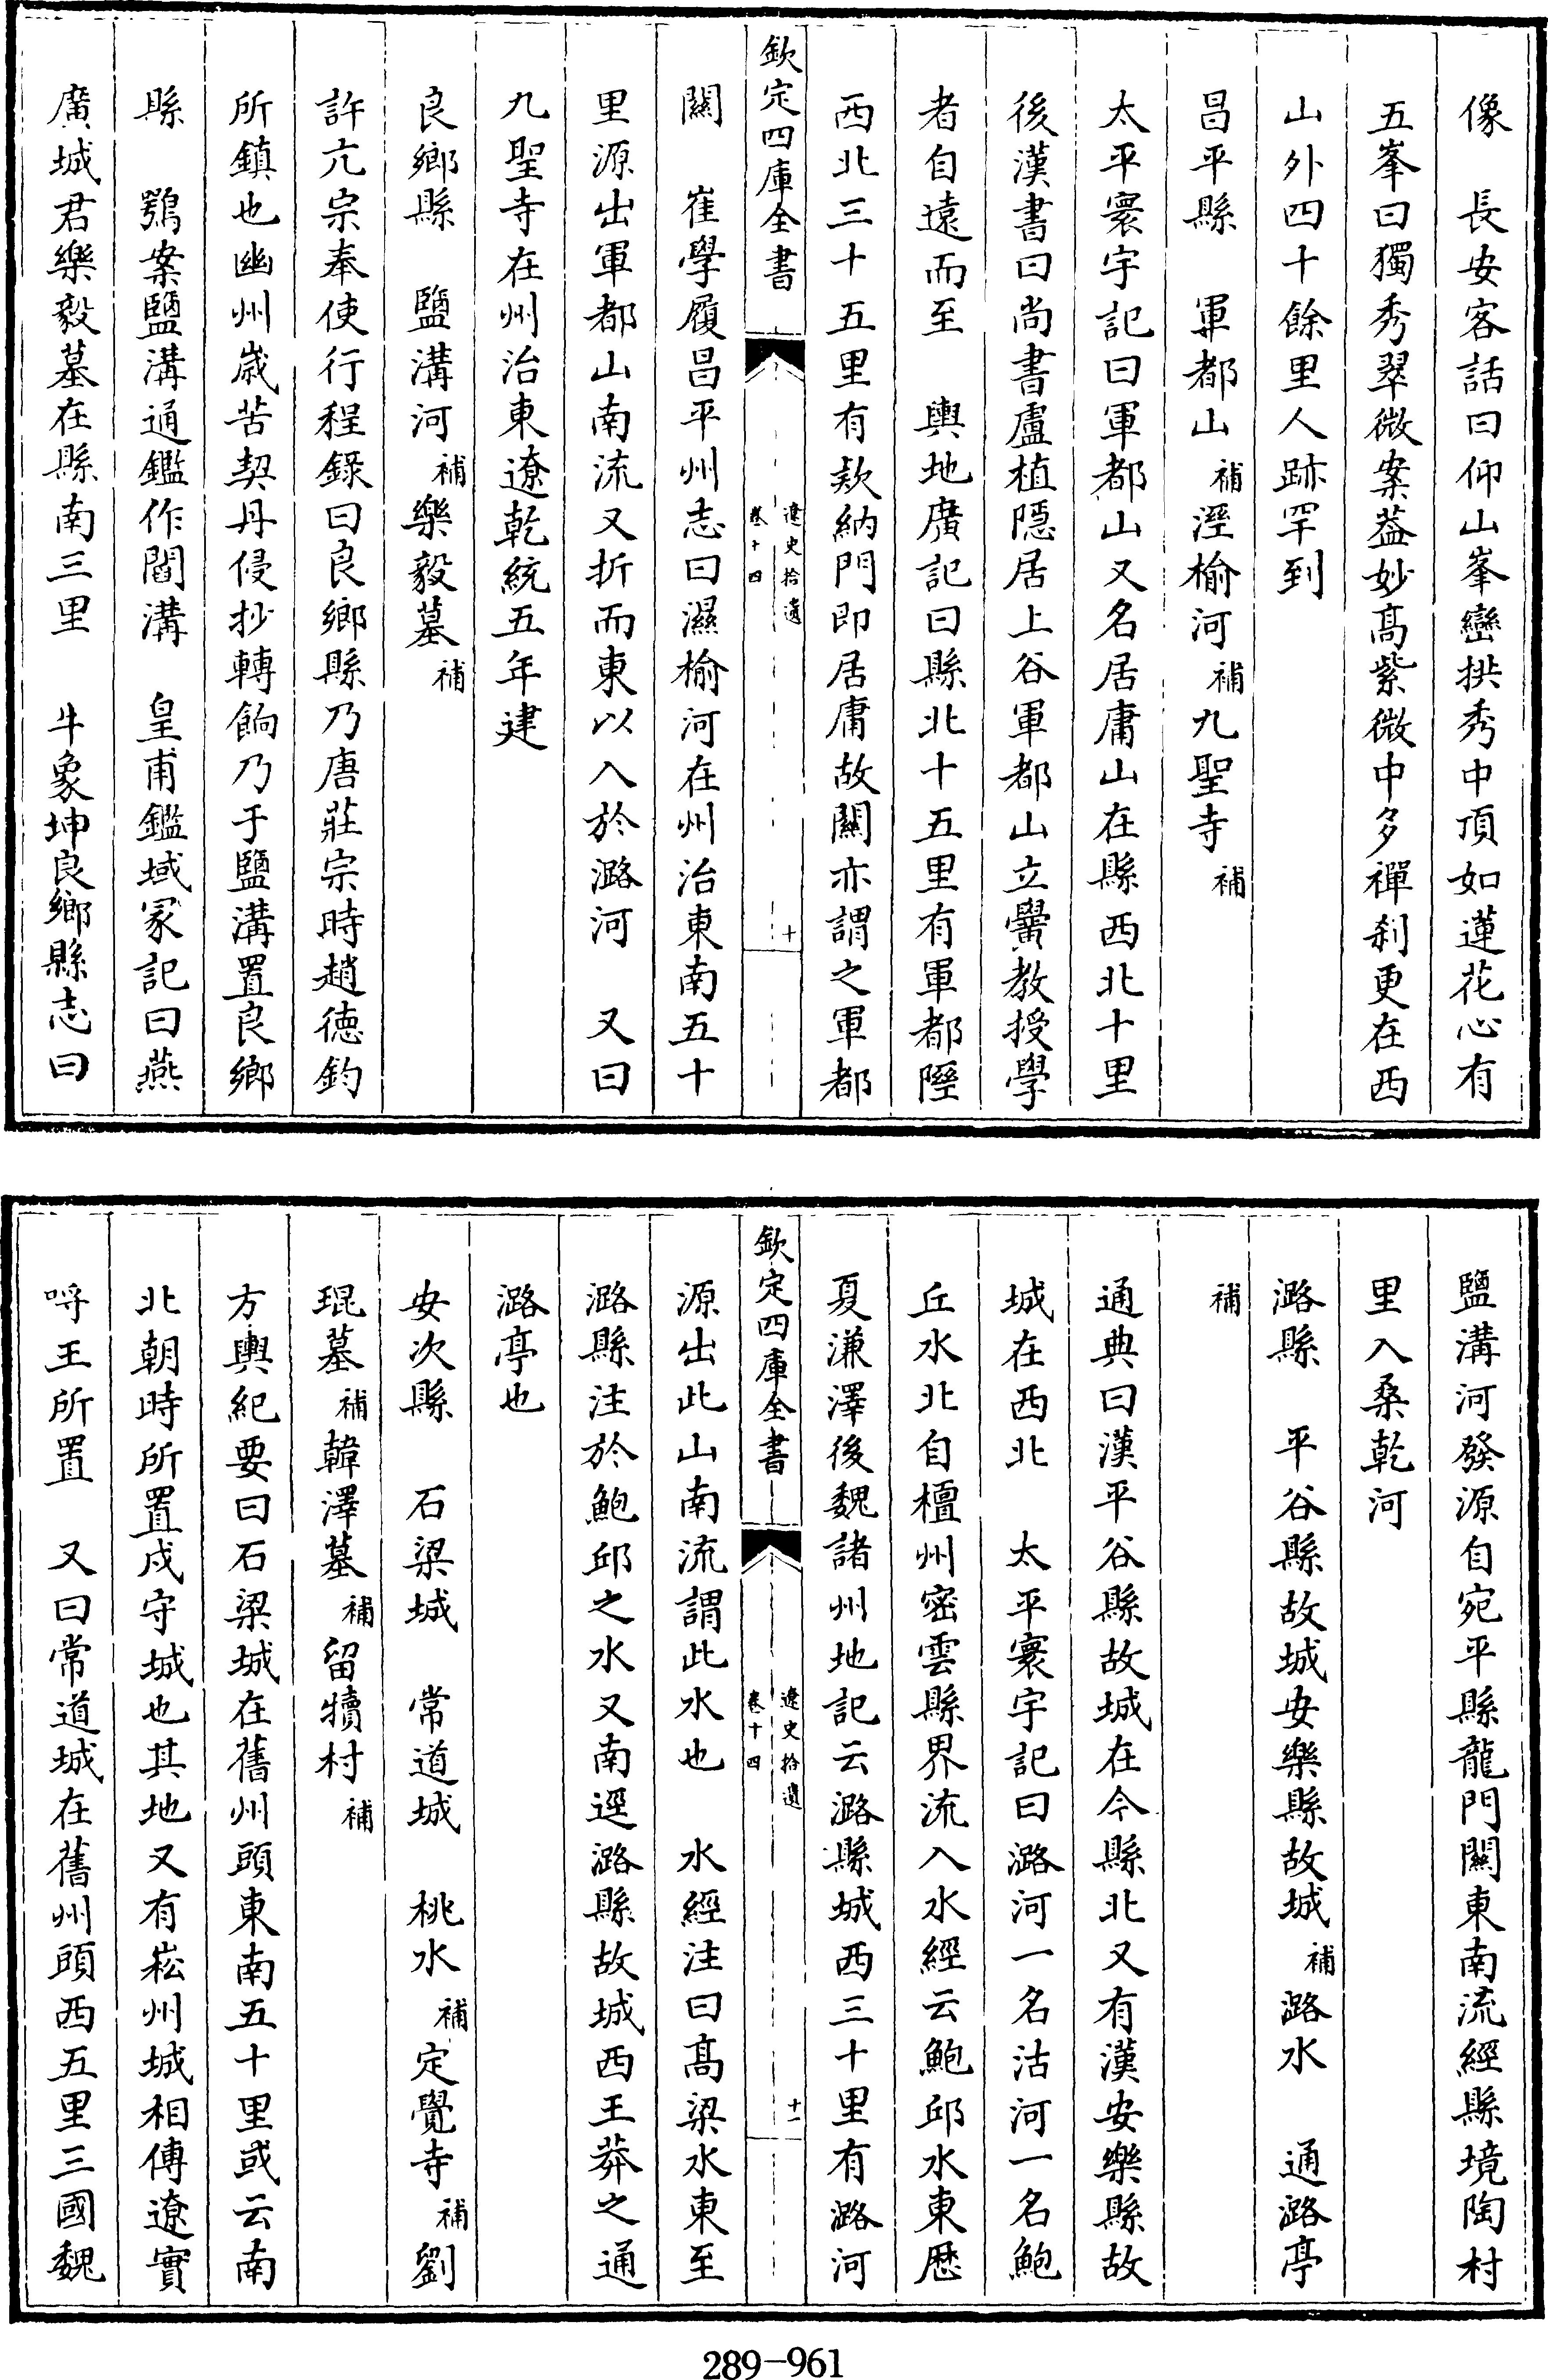 像　長安客話曰仰山峯巒拱秀中頂如蓮花心有
五峯曰獨秀翠微案葢妙髙紫微中多禪刹更在西
山外四十餘里人跡罕到
昌平縣　軍都山補溼榆河補九聖寺補
太平寰宇記曰軍都山又名居庸山在縣西北十里
後漢書曰尚書盧植隱居上谷軍都山立黌教授學
者自遠而至　輿地廣記曰縣北十五里有軍都陘
西北三十五里有欵納門即居庸故關亦謂之軍都
欽定四庫全書　遼史拾遺　卷十四　十
關　崔學履昌平州志曰濕榆河在州治東南五十
里源出軍都山南流又折而東以入於潞河　又曰
九聖寺在州治東遼乾統五年建
良鄉縣　鹽溝河補樂毅墓補
許亢宗奉使行程錄曰良鄉縣乃唐莊宗時趙徳鈞
所鎮也幽州嵗苦契丹侵抄轉餉乃于鹽溝置良鄉
縣　鶚案鹽溝通鑑作閻溝　皇甫鑑域冢記曰燕
廣城君樂毅墓在縣南三里　牛象坤良鄉縣志曰
鹽溝河發源自宛平縣龍門關東南流經縣境陶村
里入桑乾河
潞縣　平谷縣故城安樂縣故城補潞水　通潞亭
補
通典曰漢平谷縣故城在今縣北又有漢安樂縣故
城在西北　太平寰宇記曰潞河一名沽河一名鮑
丘水北自檀州密雲縣界流入水經云鮑邱水東歷
夏溓澤後魏諸州地記云潞縣城西三十里有潞河
欽定四庫全書　遼史拾遺　卷十四　十一
源出此山南流謂此水也　水經注曰髙梁水東至
潞縣注於鮑邱之水又南逕潞縣故城西王莽之通
潞亭也
安次縣　石梁城　常道城　桃水補定覺寺補劉
琨墓補韓澤墓補留犢村補
方輿紀要曰石梁城在舊州頭東南五十里或云南
北朝時所置戍守城也其地又有崧州城相傳遼實
呼王所置　又曰常道城在舊州頭西五里三國魏
289-961